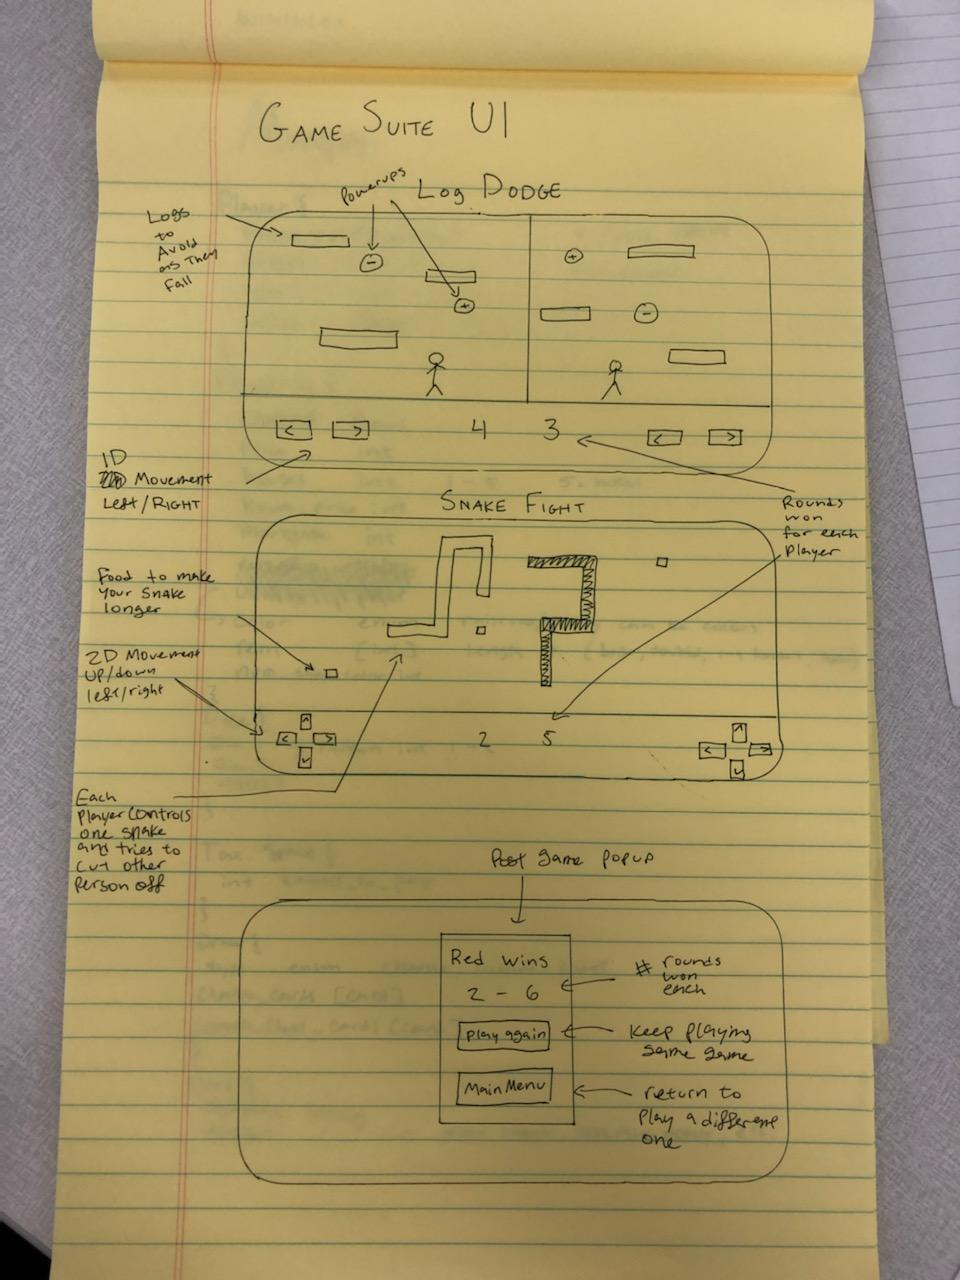 GAME SUITE UI
Powerups
LOG DODGE
Logs
to
Avoid
as They
Fall
-
+
+
-
<
>
4
3
<
>
1D
Movement
Left/RIGHT
Rounds
won
for each
Player
SNAKE FIGHT
Food to make
your snake
longer
2D Movement
UP/down
left/right
^
<
>
v
2
5
^
<
>
v
Each
player controls
one snake
and tries to
cut other
person off
Post game popup
Red wins
2 - 6
# rounds
won
each
Play again
Keep playing
same game
Main Menu
return to
play a different
one